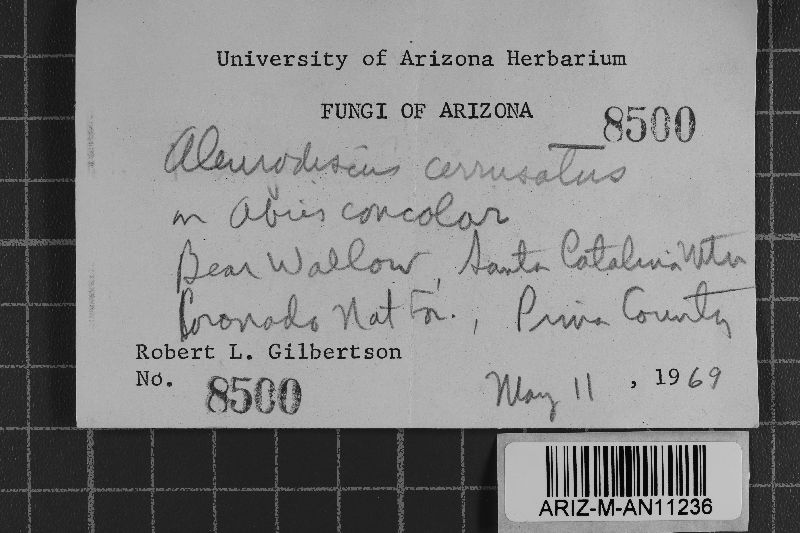 University of Arizona Herbarium
FUNGI OF ARIZONA
8500
Aleurodiscus cerrusatus
on Abies concolor
Bear Wallow, Santa Catalina Mtn
Coronado Nat For., Pima County
Robert L. Gilbertson
No. 8500
May 11, 1969
ARIZ-M-AN11236